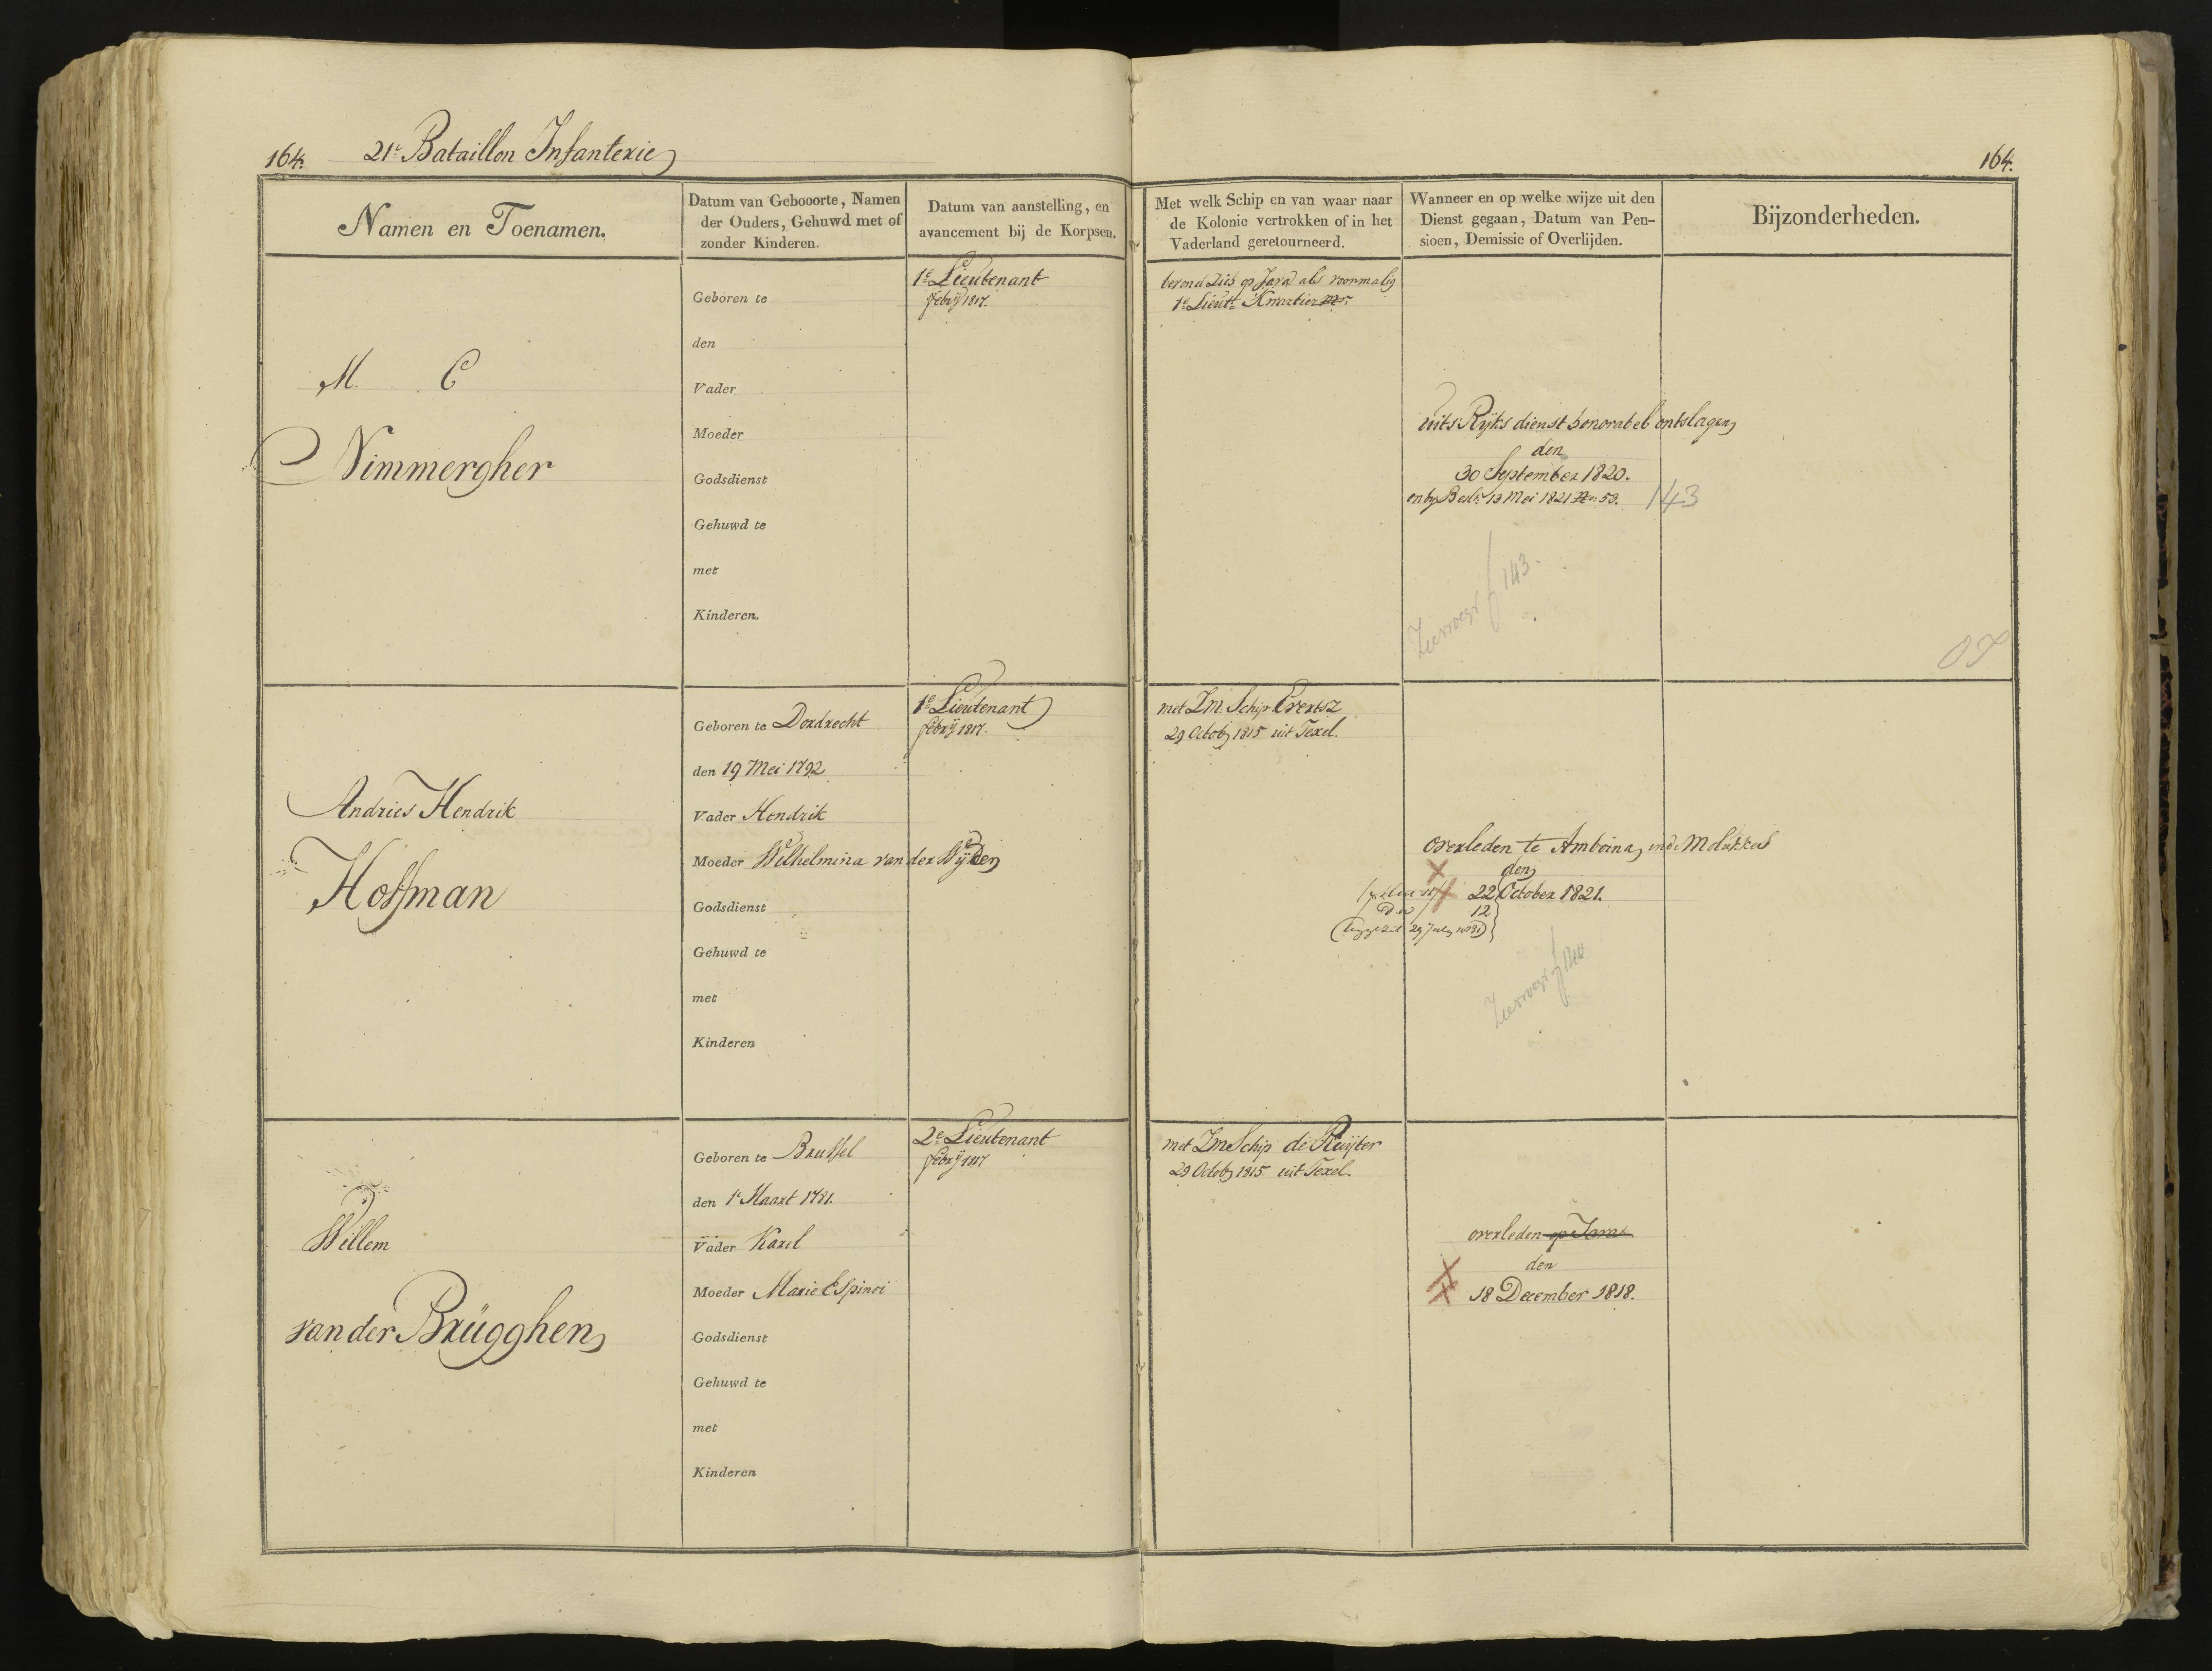 164. 21e Bataillon Infanterie
164.
Namen en Toenamen.
Datum van Gebooorte, Namen
der Ouders, Gehuwd met of
zonder Kinderen.
Datum van aanstelling, en
avancement bij de Korpsen.
Met welk Schip en van waar naar
de Kolonie vertrokken of in het
Vaderland geretourneerd.
Wanneer en op welke wijze uit den
Dienst gegaan, Datum van Pen-
sioen, Demissie of Overlijden.
Bijzonderheden.
M. C
Nimmergher
Geboren te
den
Vader
Moeder
Godsdienst
Gehuwd te
met
Kinderen.
1e Lieutenant
febrij 1817.
bevond zich op Java als voormalig
1e Lieutt Kwartier mr.
uits Rijks dienst honorabel ontslagen
den
30 September 1820.
en by Beslt 13 Mei 1821 No. 53. 143
143.
Andries Hendrik
Hoffman
Geboren te Dordrecht
den 19 Mei 1792
Vader Hendrik
Moeder Wilhelmina van der Wijden
Godsdienst
Gehuwd te
met
Kinderen
1e Lieutenant
febrij 1817.
met Zm. Schip Evertsz
29 Octob 1815 uit Texel.
overleden te Amboina in de Molukkos
den
22 October 1821.
12
Willem
van der Brügghen
Geboren te Brussel
den 1e Maart 1781.
Vader Karel
Moeder Marie Espinoi
Godsdienst
Gehuwd te
met
Kinderen
2e Lieutenant
febrij 1817
met Zm Schip de Ruijter
29 Octob 1815 uit Texel.
overleden op Java
den
18 December 1818.